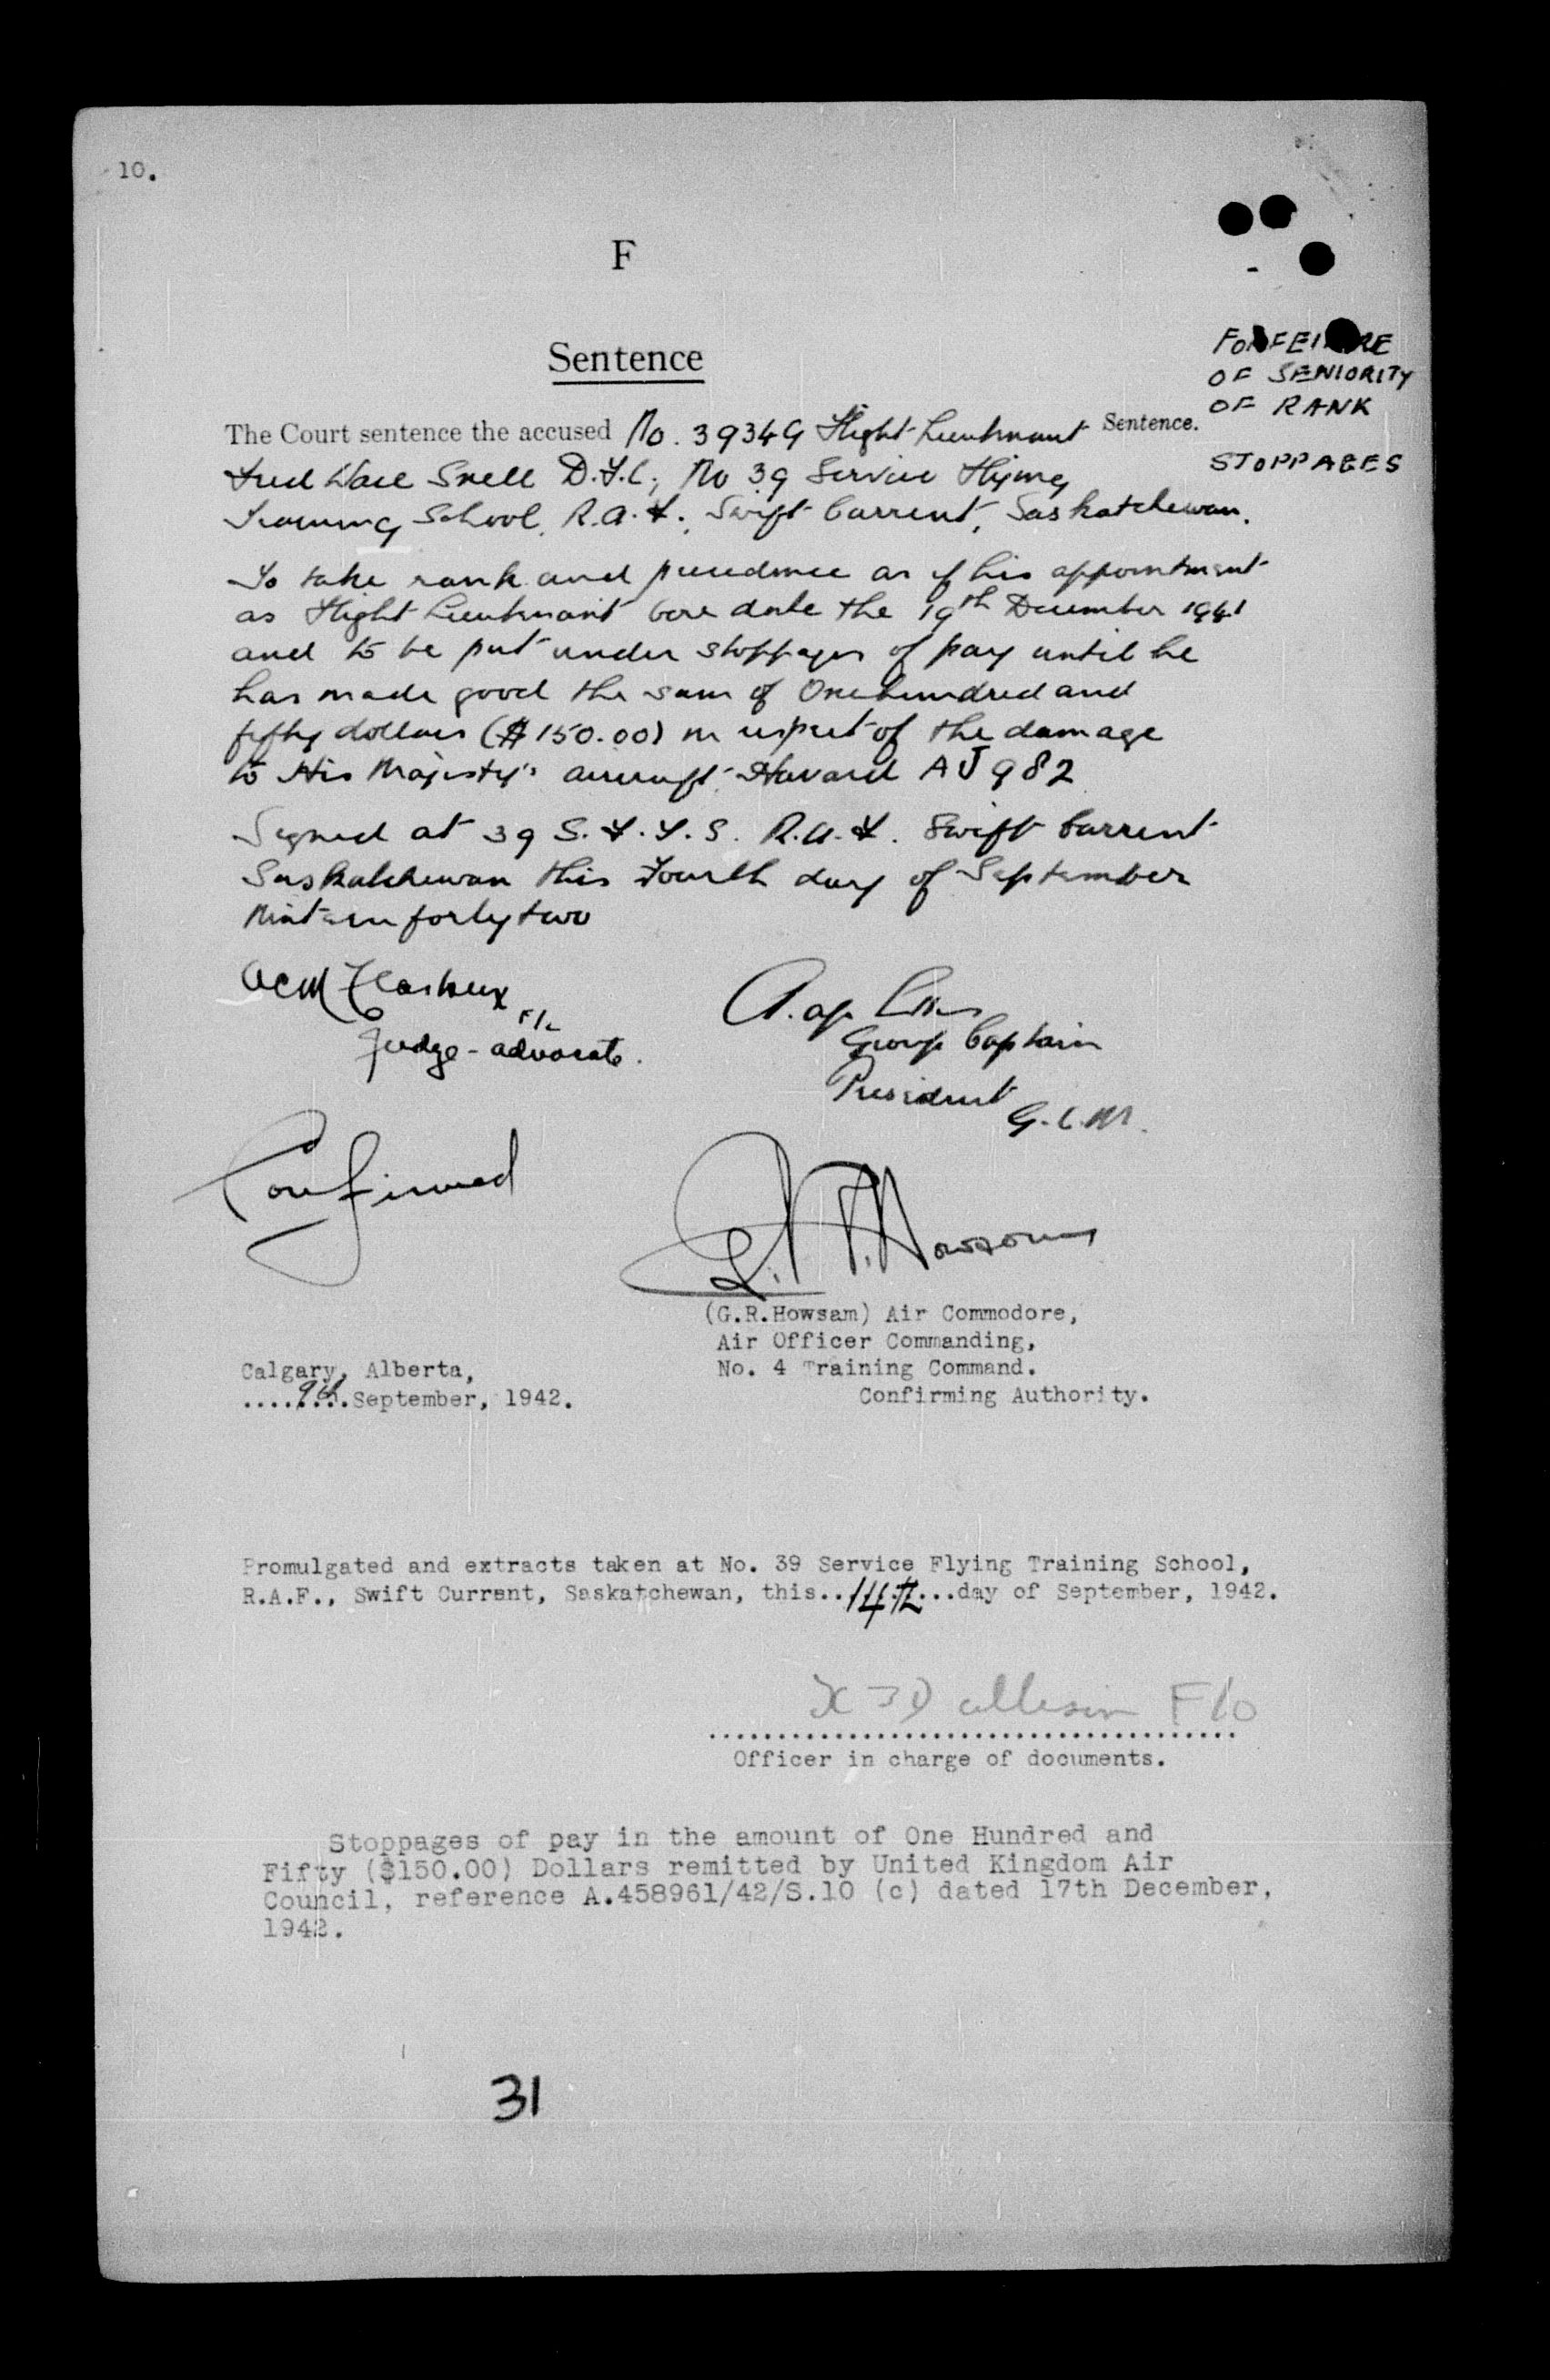 10.
F
Sentence
FORFEITURE
OF SENIORITY
OF RANK
STOPPAGES
The Court sentence the accused No. 39349 Flight Lieutenant Sentence.
Fred Snell D.F.C., No 39 Service Flying
Training School, R.A.F., Swift Current, Saskatchewan.
To take rank and precedence as if his appointment
as Flight Lieutenant bore date the 19th December 1941
and to be put under stoppages of pay until he
has made good the sum of One hundred and
fifty dollars ($150.00) in respect of the damage
to His Majesty's aircraft Havard AJ982
Signed at 39 S.F.T.S. R.A.F. Swift Current
Saskatchewan this Fourth day of September
Nineteen forty two
F/L
Judge-advocate.
Group Captain
President
G.C.M.
Confirmed
G.R.Howsam
(G.R.Howsam) Air Commodore,
Air Officer Commanding,
No. 4 Training Command.
Confirming Authority.
Calgary, Alberta,
....9th....September, 1942.
Promulgated and extracts taken at No. 39 Service Flying Training School,
R.A.F., Swift Current, Saskatchewan, this..14th...day of September, 1942.
F/O
Officer in charge of documents.
Stoppages of pay in the amount of One Hundred and
Fifty ($150.00) Dollars remitted by United Kingdom Air
Council, reference A.458961/42/S.10 (c) dated 17th December,
1942.
31